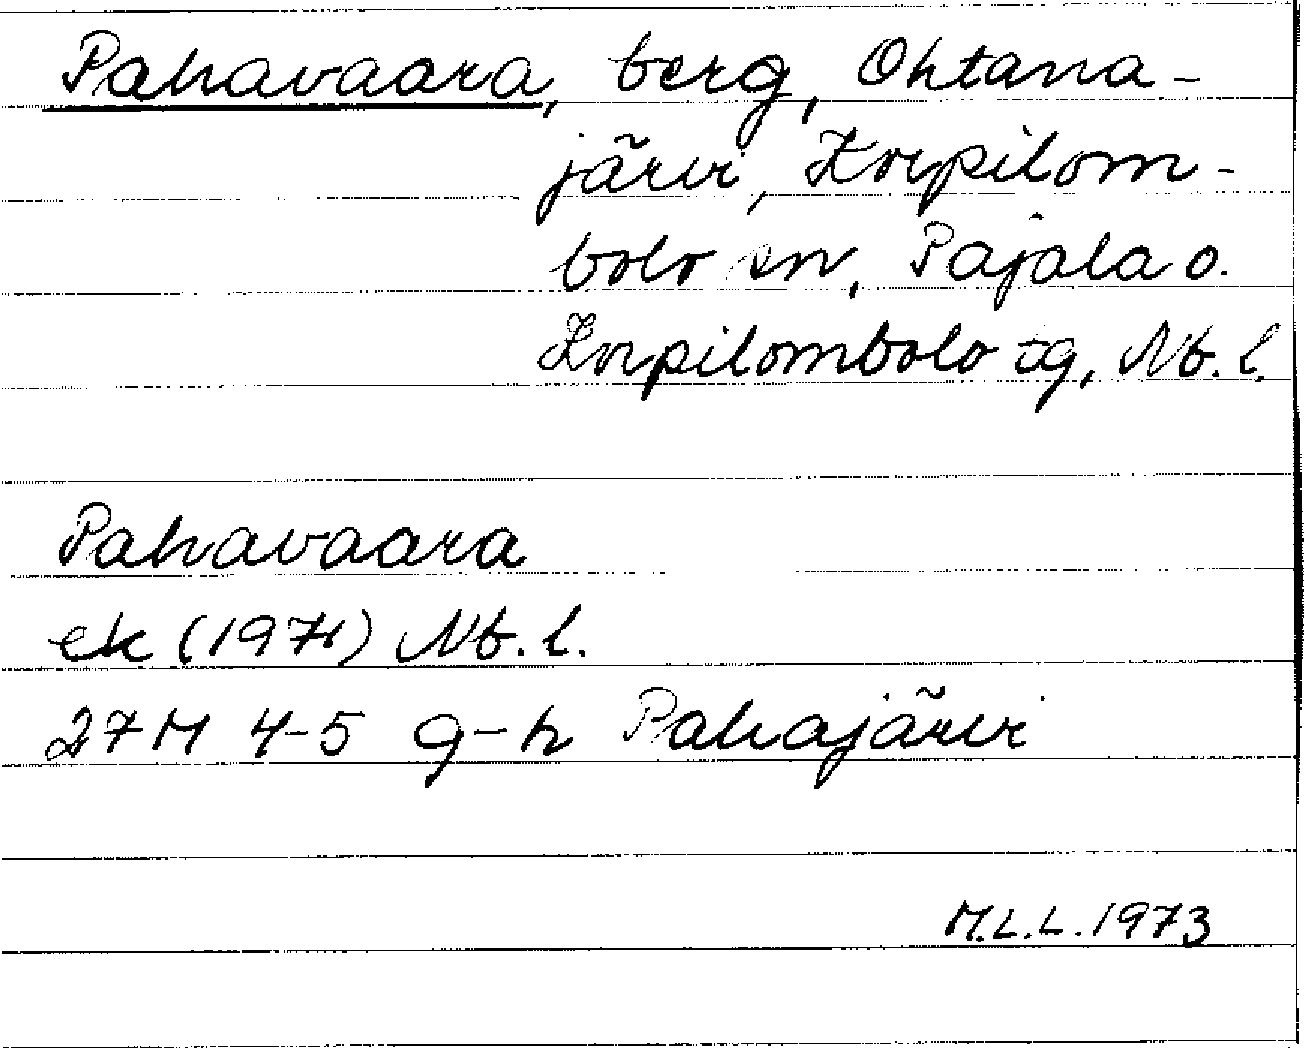 Pahavaara, berg, Ohtana-
järvi, Korpilom-
bolo sn, Pajala o.
Korpilombolo tg, Nb. l.
Pahavaara
ek (1971) Nb. l.
27M 4-5 g-h Pahajärvi
M.L.L. 1973